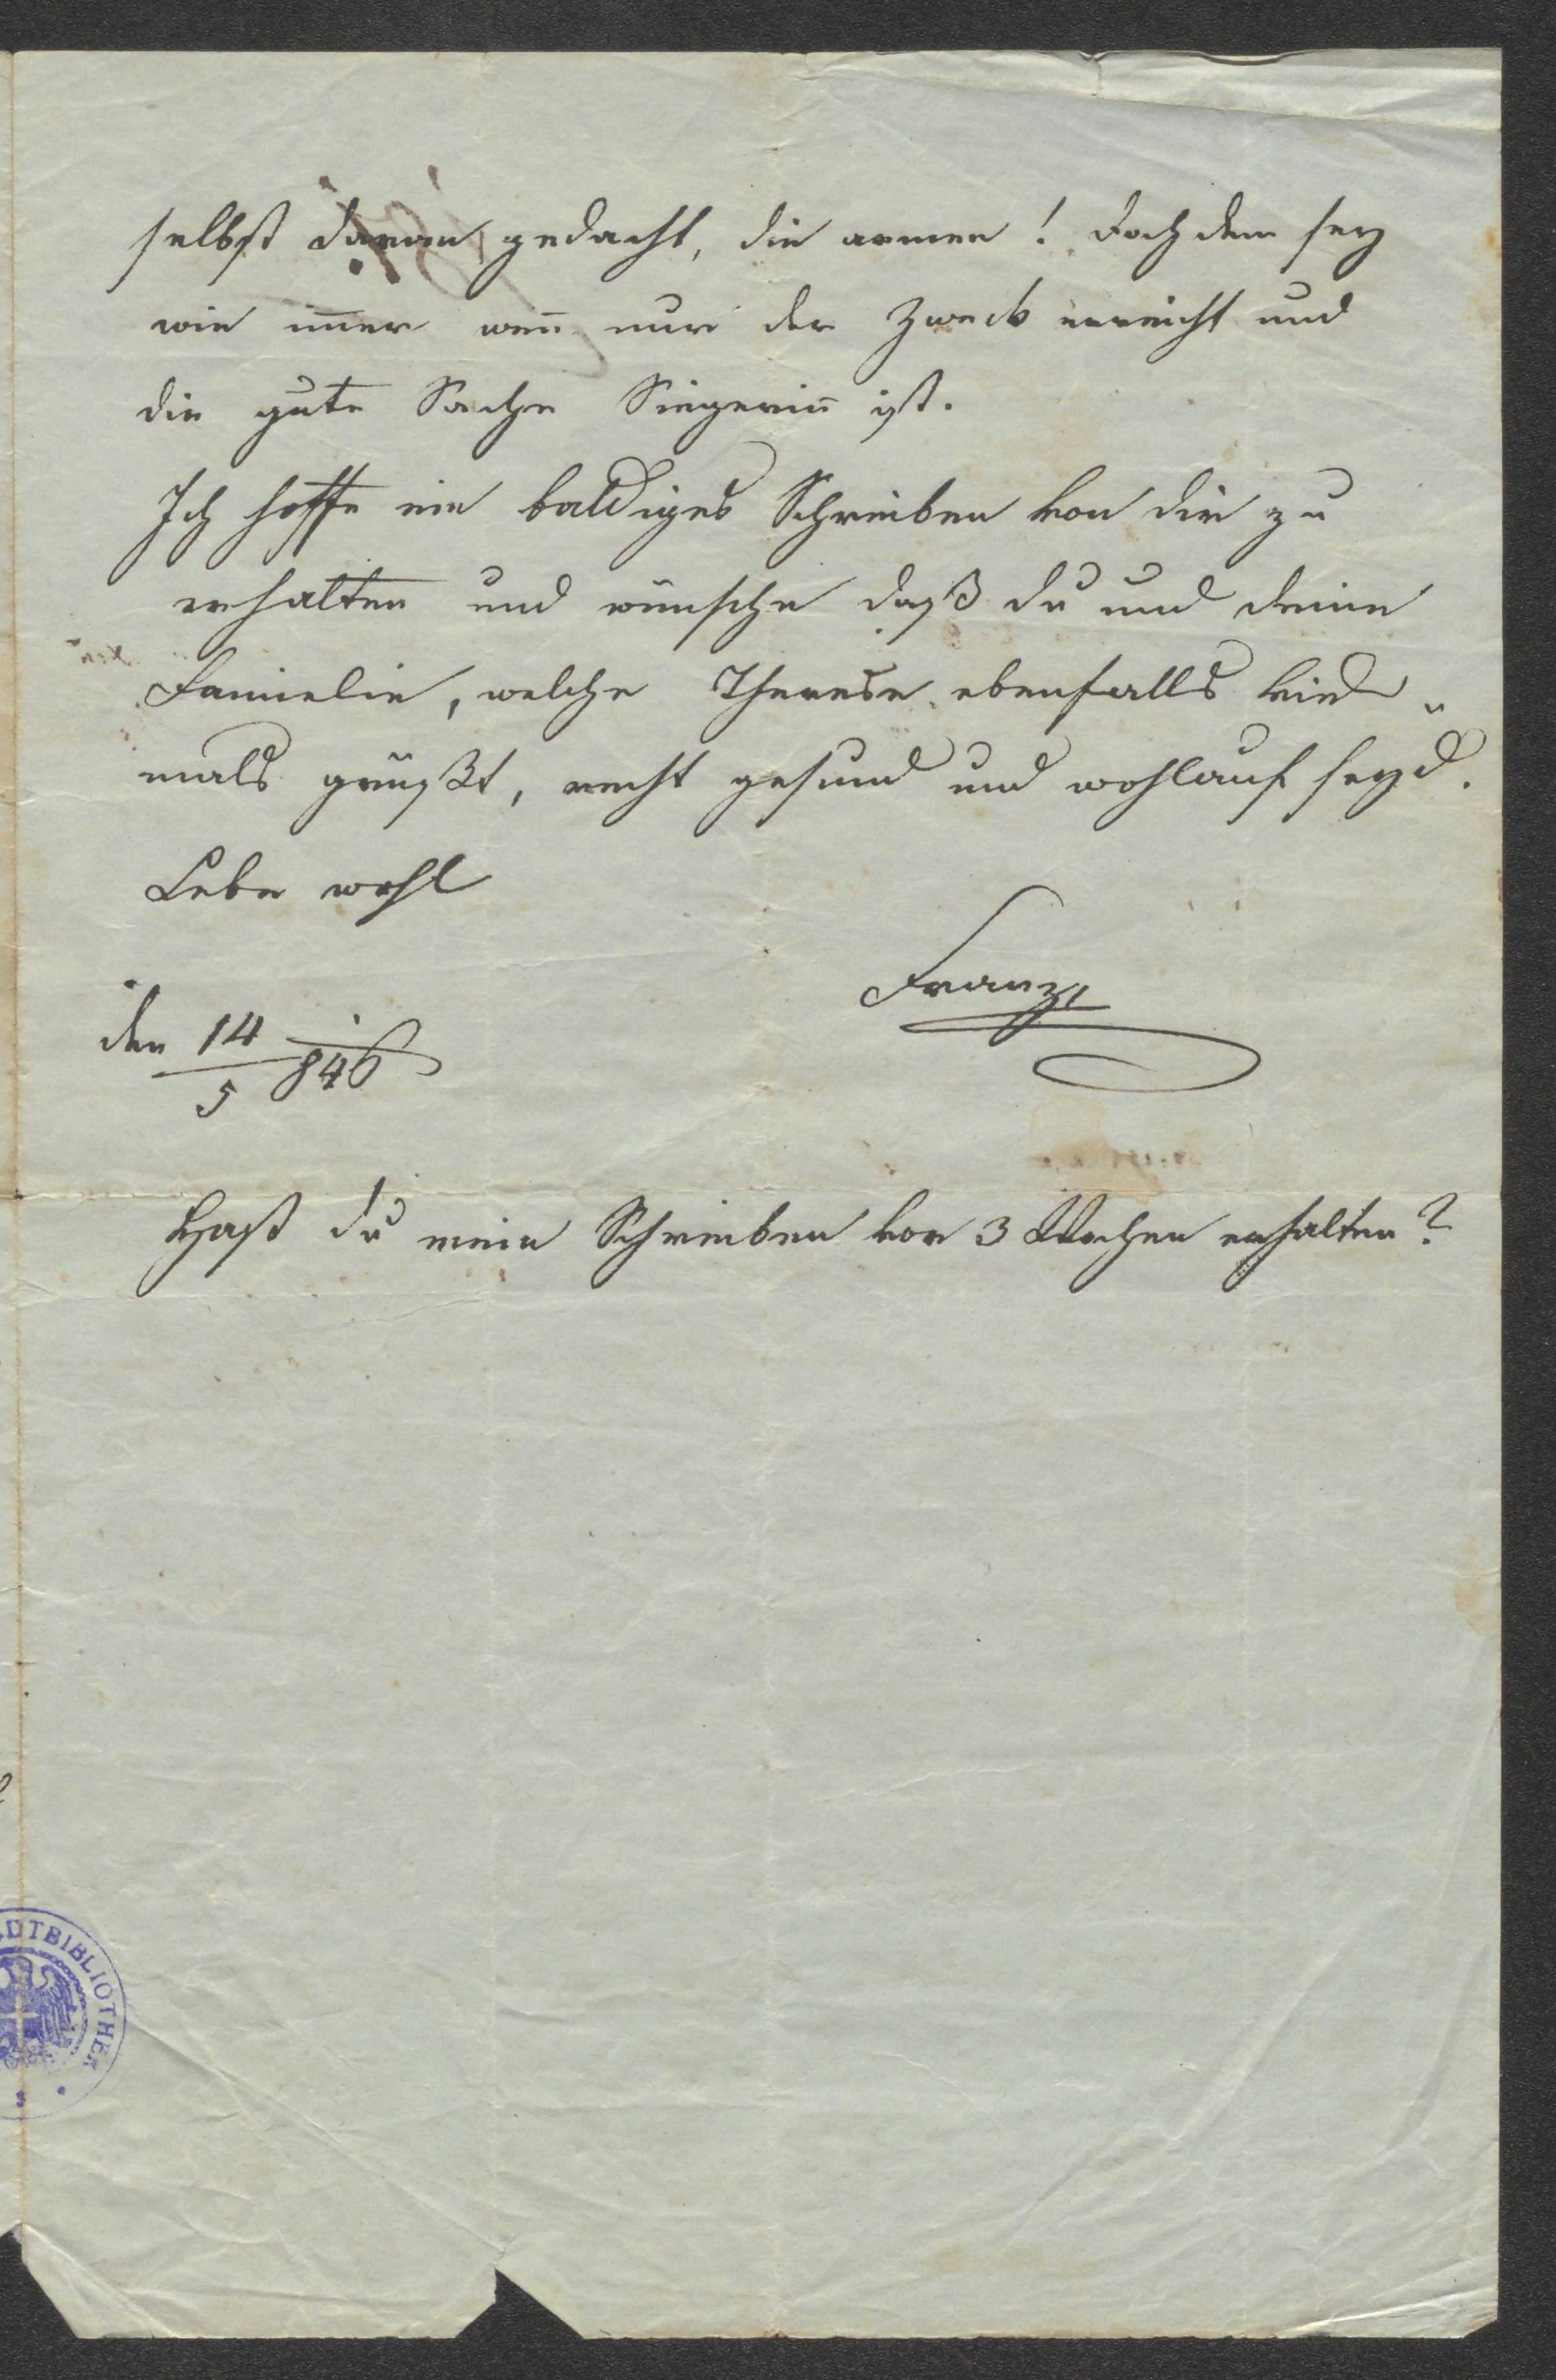 selbst daran gedacht, die armen! doch dem sey
wie im̅er wen̅ nur der Zweck erreicht und
die gute Sache Siegerin̅ ist.
Ich hoffe ein baldiges Schreiben von dir zu
erhalten und wünsche daß du und deine
Famielie, welche Therese ebenfalls viel„
mals grüßt, recht gesund und wohlauf seyd.
Lebe wohl
Franz
den 14/5 846
Hast du mein Schreiben vor 3 Wochen erhalten?
DTBIBLIOTHEK